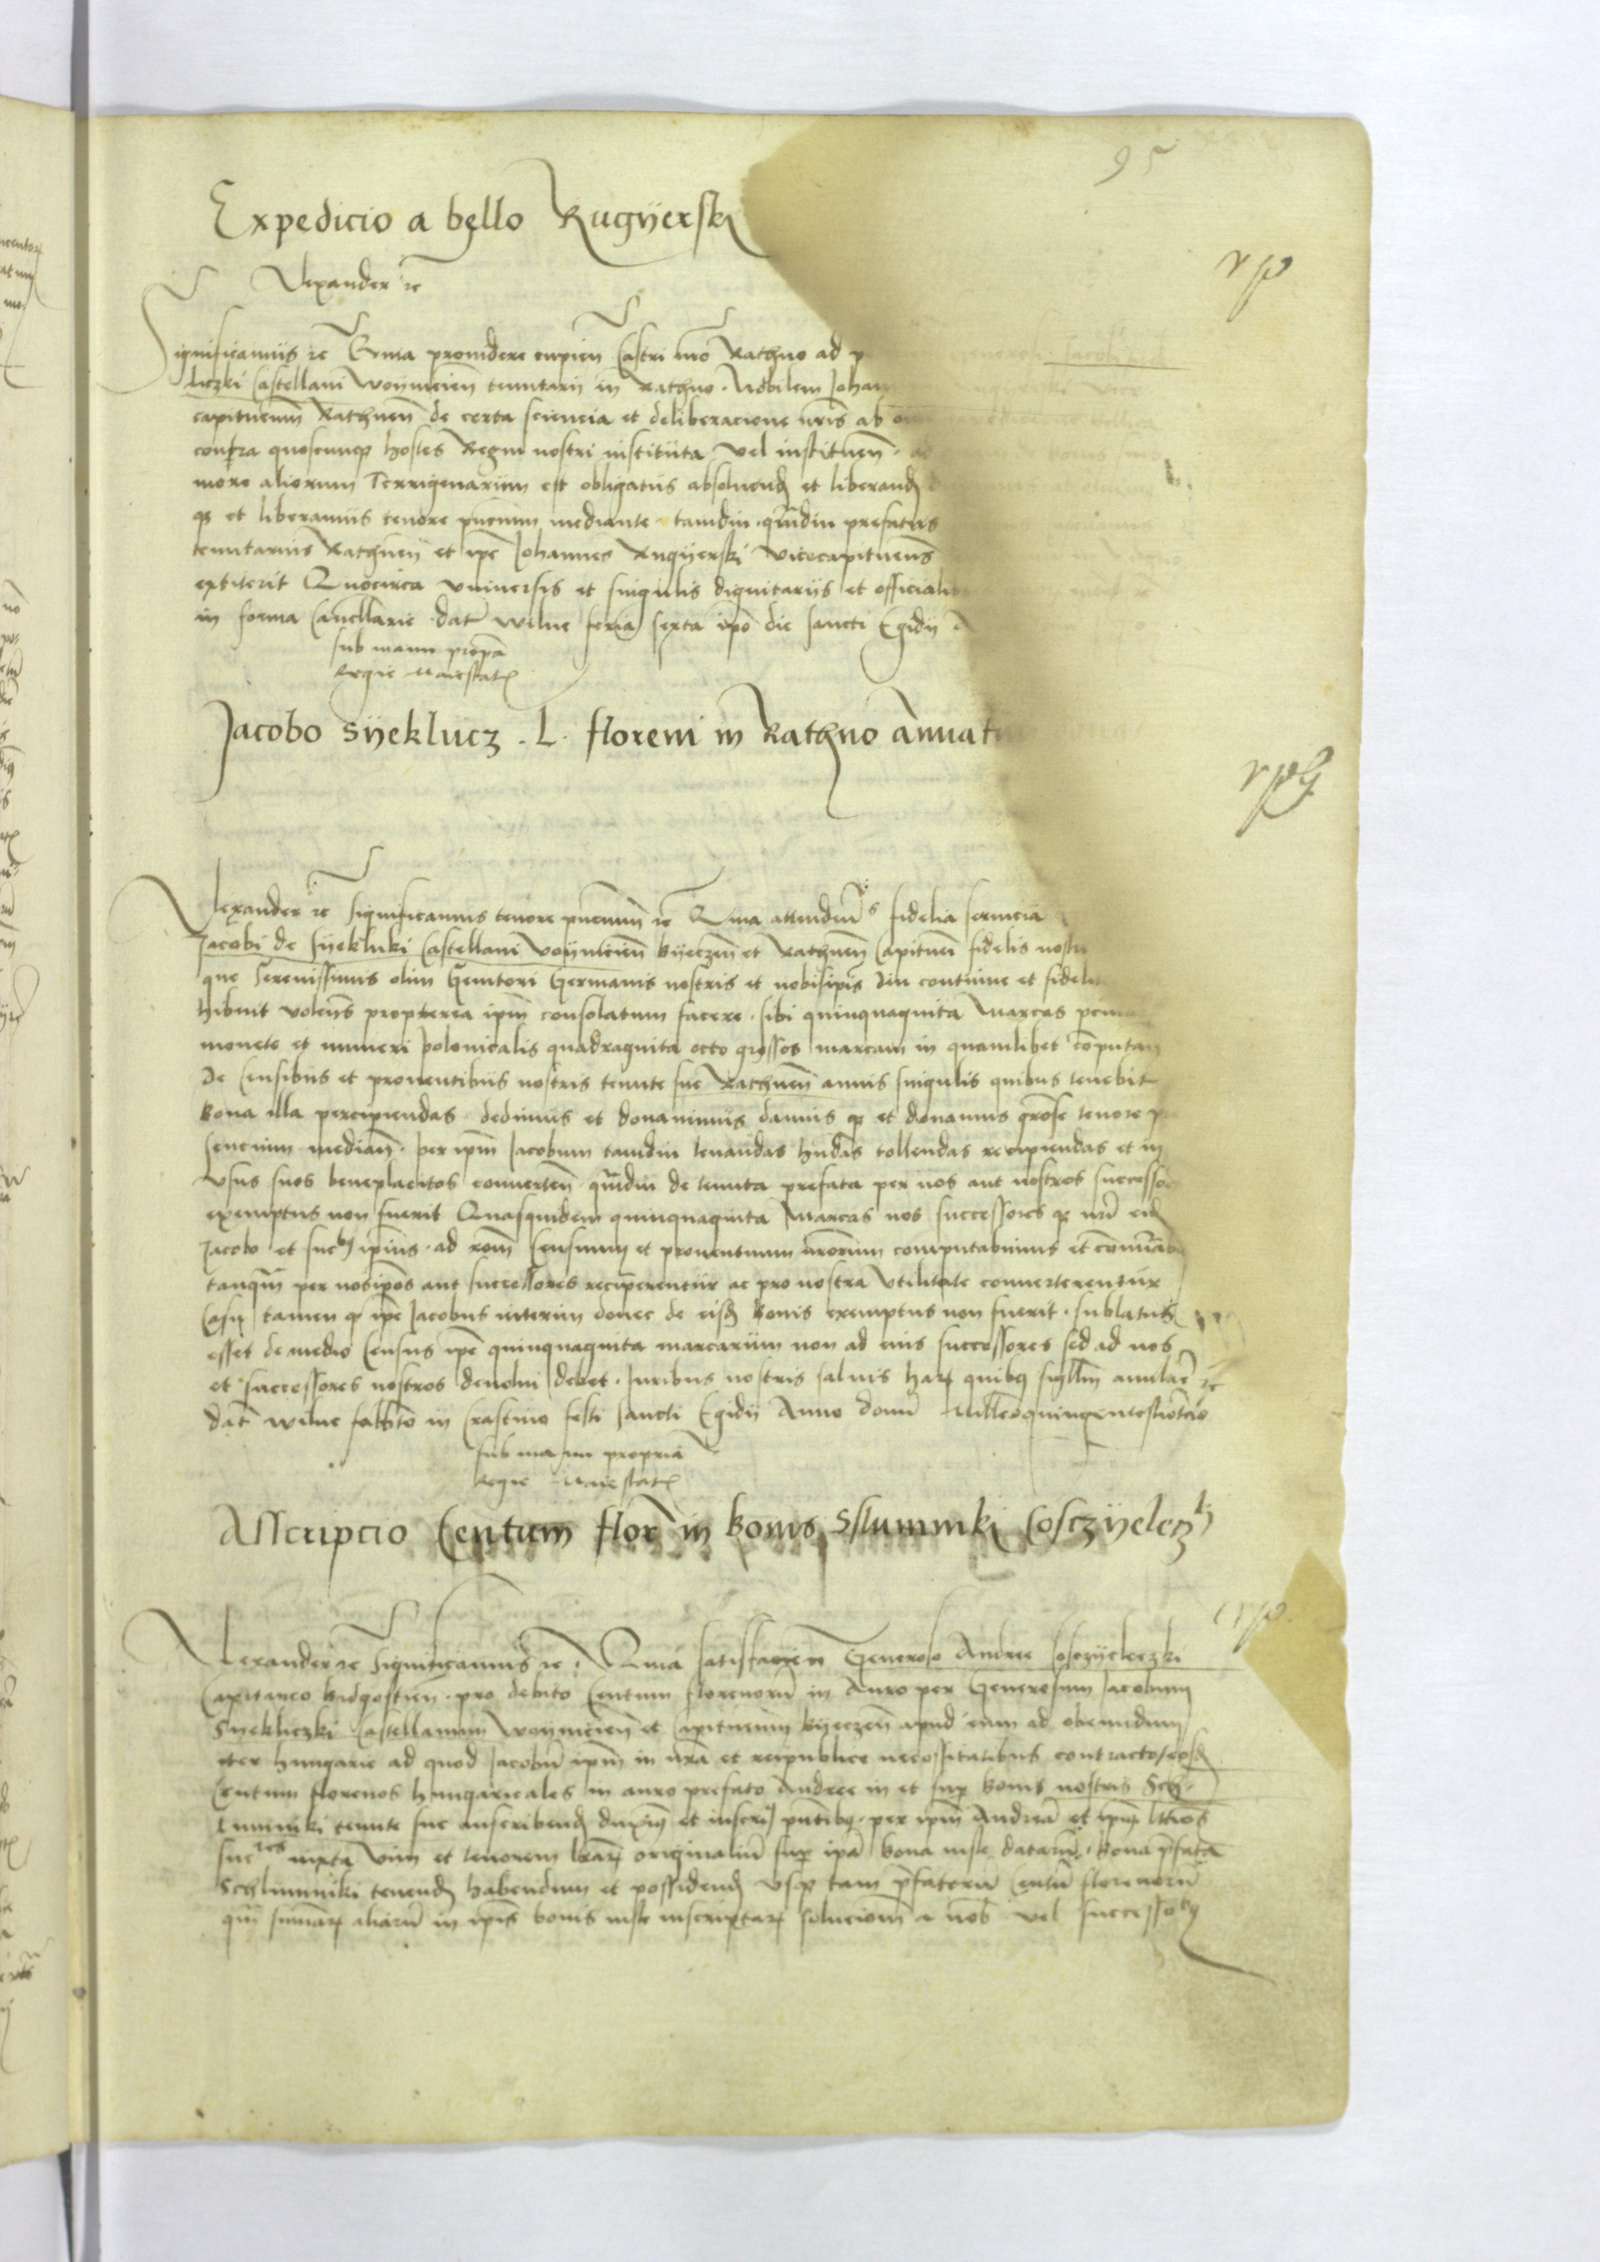 95
Expedicio a bello Rugyerski
Alexander rc
Significamus rc Quia providere cupien Castri nro Rathno ad
liczki Castellani Woynicien tenutarii in Rathno . Nobilem Johan
capitneum Rathnen de certa sciencia et deliberacione nris ab
contra quoscunq hostes Regni nostri instituta vel instituen .
more aliorum Terrigenarum est obligatus absoluend et liberand
q et liberamus tenore pncium mediante . tamdiu quamdiu prefatus
tenutarius Rathnen et ipe Johannes Rugyerski vicecapitneus
extiterit Quocirca universis et singulis dignitariis et officialib
in forma Cancellarie . dat Wilne feria sexta ipo die sancti Egidii
sub manu propa
Regie Maiestat
Jacobo Syeklucz . L . floreni in Rathno annuati
Alexander rc Significamus tenore pncium rc Quia attenden fidelia servicia
Jacobi de Syekluki Castellani Woynicien Byeczen et Rathnen Capitnei fidelis nostri
que Serenissimis olim Genitori Germanis nostris et nobisipis diu continue et fidelit
hibuit volens propterea ipm consolatum facere . sibi quinquaginta Marcas pecun
monete et numeri polonicalis quadraginta octo grossos marcam in quamlibet computan
de Censibus et proventibus nostris tenute sue Rathnen annis singulis quibus tenebit
bona illa percipiendas . dedimus et donavimus damus q et donamus grose tenore pre
sencium median . per ipm Jacobum tamdiu levandas hndas tollendas recipiendas et in
usus suos beneplacitos converten quamdiu de tenuta prefata per nos aut nostros successores
exemptus non fuerit Quasquidem quinquaginta Marcas nos successores q nri eid
Jacobo et suc ipius . ad rom Censuum et proventuum nrorum computabimus et
tanqm per nosipos aut successores reciperentur ac pro nostra utilitate converterentur
Casu tamen q ipe Jacobus interim donec de eisd bonis exemptus non fuerit . sublatus
esset de medio Census ipe quinquaginta marcarum non ad eius successores sed ad nos
et successores nostros devolvi debet . Juribus nostris salvis Har quibus sigillm anulare rc
dat Wilne sabbto in Crastino festi sancti Egidii Anno domi Millesioquingentesiotercio
sub manu propria
Regie Maiestat
Asscripcio Centum flor in bonis Sslumniki Cosczyeleczki
Alexander rc Significamus rc . Quia satisfacien Generoso Andree Cosczyeleczki
Capitaneo Bidgostien . pro debito Centum florenorum in Auro per Generosum Jacobum
Syekliczki Castellanum Woynicien et Capitneum Byeczen apud eum ad obeundum
iter hungarie ad quod Jacobum ipm in nra et reipublice necessitatibus contracto eosd
Centum florenos hungaricales in auro prefato Andree in et sup bonis nostris Sch
lumniki tenute sue inscribend duxim et inscri pntibus . per ipm Andream et ipius lttimos
succres iuxta vim et tenorem lrar originalium sup ipa bona inste datarum . bona prefata
Schlumniki tenend habendum et possidend usq tam prefatorum Centum florenorum
qm summar aliarum in ipis bonis inste inscriptar solucionem a nob vel successorib